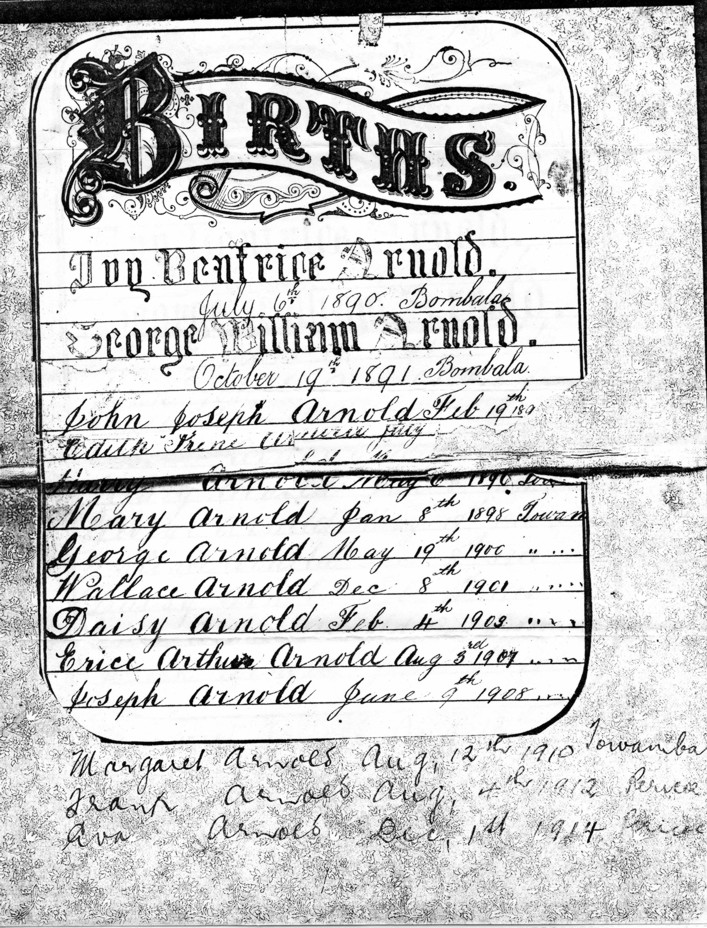 BIRTHS.
Ivy Beatrice Arnold.
July 6th 1890. Bombala
George William Arnold.
October 19th 1891. Bombala.
John Joseph Arnold Feb 19th
Edith Irene July
Arnold May 1896
Mary Arnold Jan 8th 1898 Towam
George Arnold May 19th 1900 " ....
Wallace Arnold Dec 8th 1901 " ....
Daisy Arnold Feb 4th " ....
Erice Arthur Arnold Aug 3rd 1907 " ....
Joseph Arnold June 9th 1908 ....
Margaret Arnold Aug, 12th 1910 Towamba
Frank Arnold Aug, 4th 1912 Perico
Ava Arnold Dec, 1st 1914 Perico